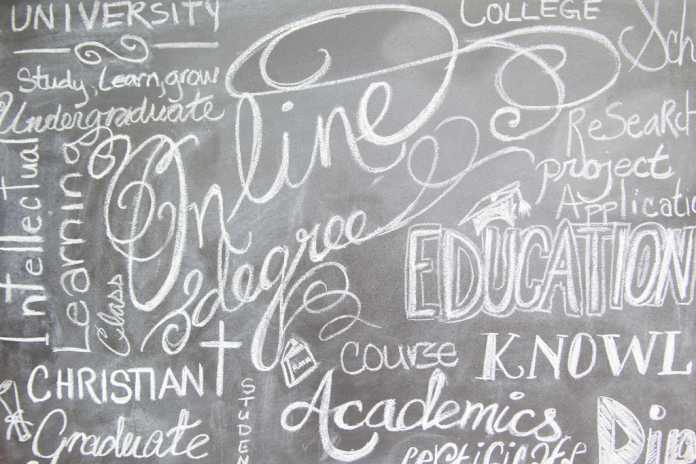 UNIVERSITY
COLLEGE
Study, Learn, grow
Undergraduate
Online
degree
Intellectual
Learning
Class
ReSeaRch
project
Applicatio
EDUCATION
course
KNOWL
CHRISTIAN
STUDEN
Academics
Graduate
certificate
Dip